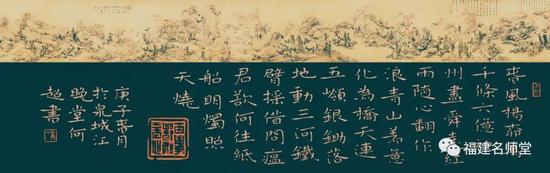 春風楊柳萬
千條六億神
州盡舜堯紅
雨隨心翻作
浪青山著意
化為橋天連
五嶺銀鋤落
地動三河鐵
臂搖借問瘟
君欲何往紙
船明燭照
天燒
庚子春月
於泉城江
晚堂何
超書
福建名师堂